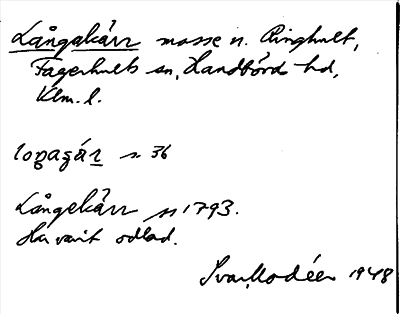 Långakärr mosse n. Ringhult,
Fagerhults sn, Handbörd hd,
Klm. l.
s. 36
Långekärr 1793.
Har varit odlad.
Ivar Modéer 1948